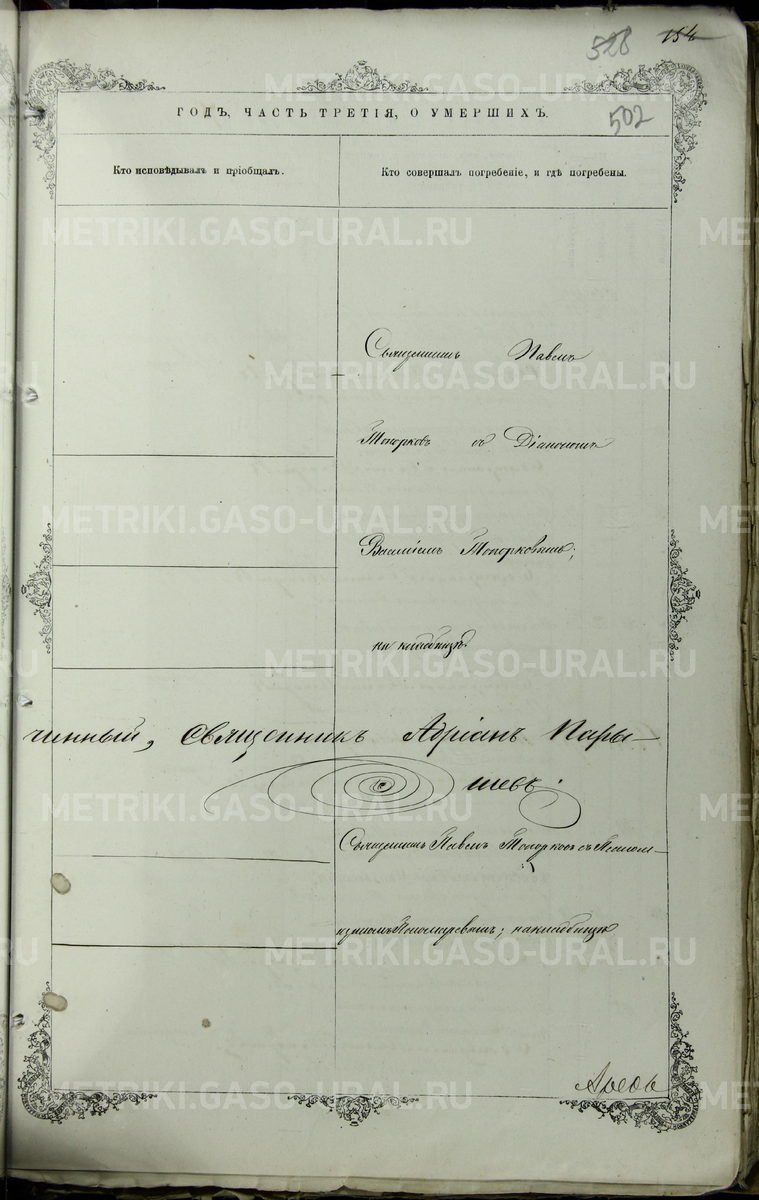 528 154
ГОДЪ, ЧАСТЬ ТРЕТІЯ, О УМЕРШИХЪ.
502
Кто исповѣдывалъ и пріобщалъ.
Кто совершалъ погребеніе, и гдѣ погребены.
Священникъ Павелъ
Топорковъ съ Діакономъ
Василіемъ Топорковымъ;
на кладбищѣ
чинный, Священникъ Адріанъ Пары-
шевъ.
Священникъ Павелъ Топорковъ съ
Пономаревымъ; на кладбищѣ
METRIKI.GASO-URAL.RU